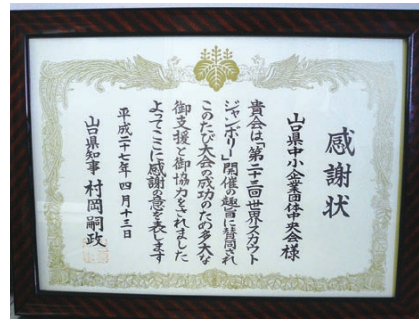 感謝状
山口県中小企業団体中央会様
貴会は「第二十三回世界スカウト
ジャンボリー」開催の趣旨に賛同され
このたび大会の成功のため多大な
御支援と御協力をされました
よってここに感謝の意を表します
平成二十七年四月十三日
山口県知事 村岡嗣政